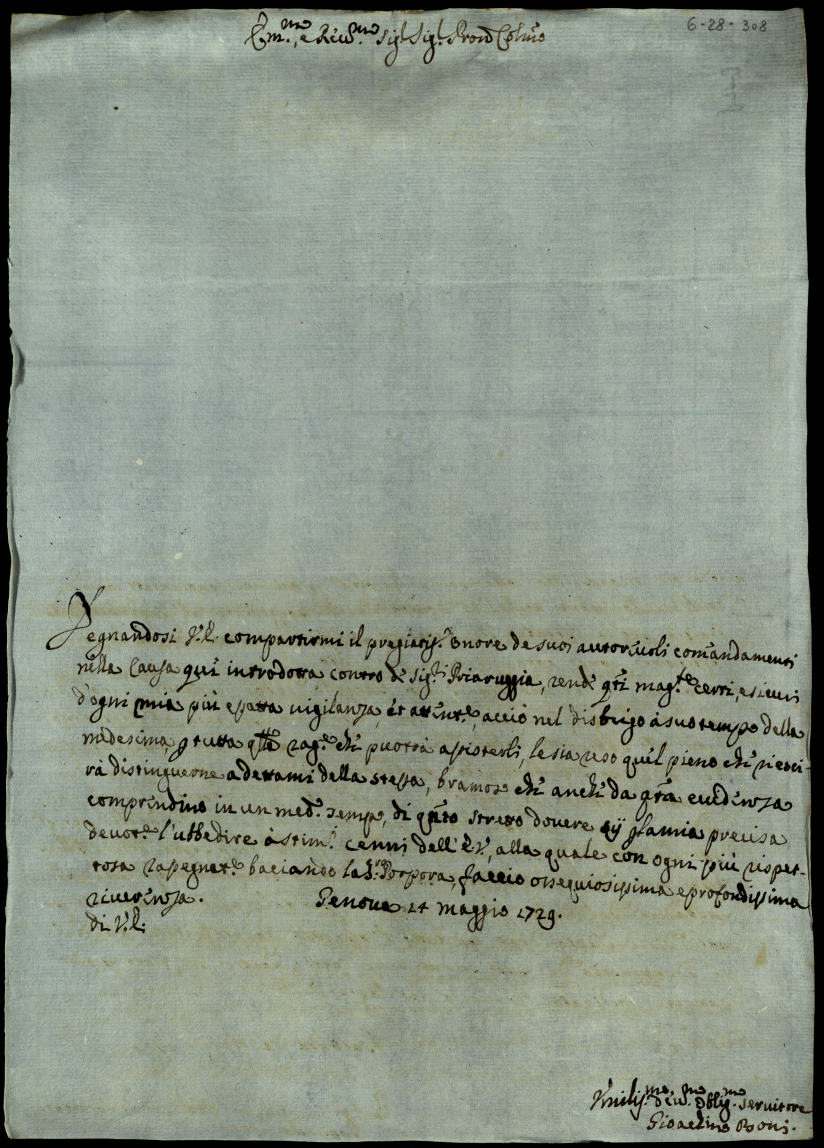 6-28-308
Em.mo, e Reu.mo Sig.r Sig.r Pron Col.mo
Degnandosi V.E. compartirmi il pregiatis.o onore de suoi autoreuoli comandamenti
nella Causa qui introdotta contro de Sig.ri Priaruggia, rendo q.ti mag.ti certi, e sicuri
d'ogni mia più esatta uigilanza, et attent.e, acciò nel disbrigo à suo tempo della
medesima, p tutta q.lla rag.e che puotrà assisterli, le sia reso quel pieno che riesci-
rà distinguerne a dettami della stessa, bramoso che anche da q.sta euidenza
comprendino in un med.o tempo, di q.nto stretto douere sij p la mia precisa
deuot.e l'ubbedire à stim.i cenni dell'E.V., alla quale con ogni più rispet-
tosa rapegnat.e baciando la S. Porpora, faccio ossequiosissima e profondissima
riuerenza. Genoua 14 maggio 1729.
di V.E.
Vmilis.mo Deu.mo Oblig.mo Seruitore
Gioachino Boni.